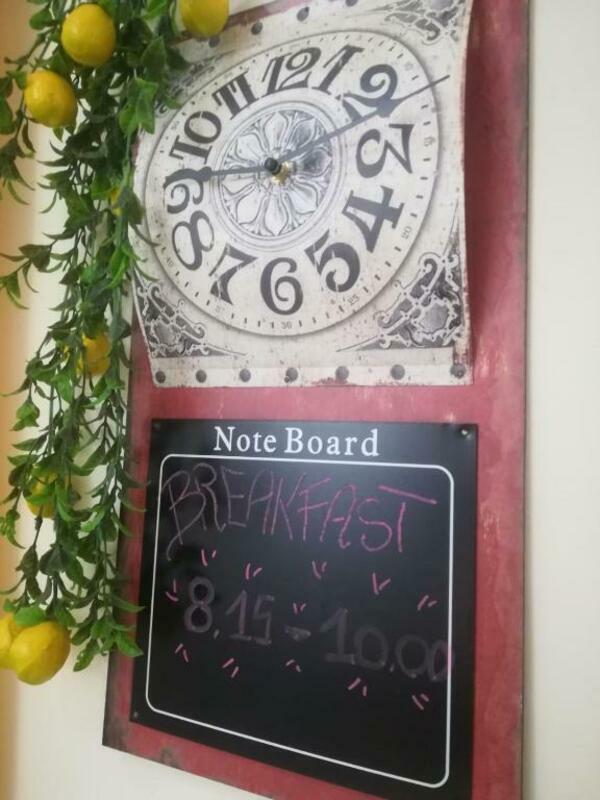 12
1
2
3
4
5
6
7
8
9
10
11
20
25
30
Note Board
BREAKFAST
8.15 - 10.00